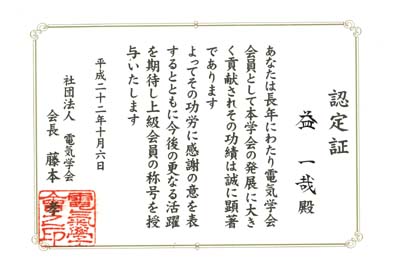 認定証
益 一哉 殿
あなたは長年にわたり電気学会
会員として本学会の発展に大き
く貢献されその功績は誠に顕著
であります
よってその功労に感謝の意を表
するとともに今後の更なる活躍
を期待し上級会員の称号を授
与いたします
平成二十二年十月六日
社団法人 電気学会
会長 藤本 孝